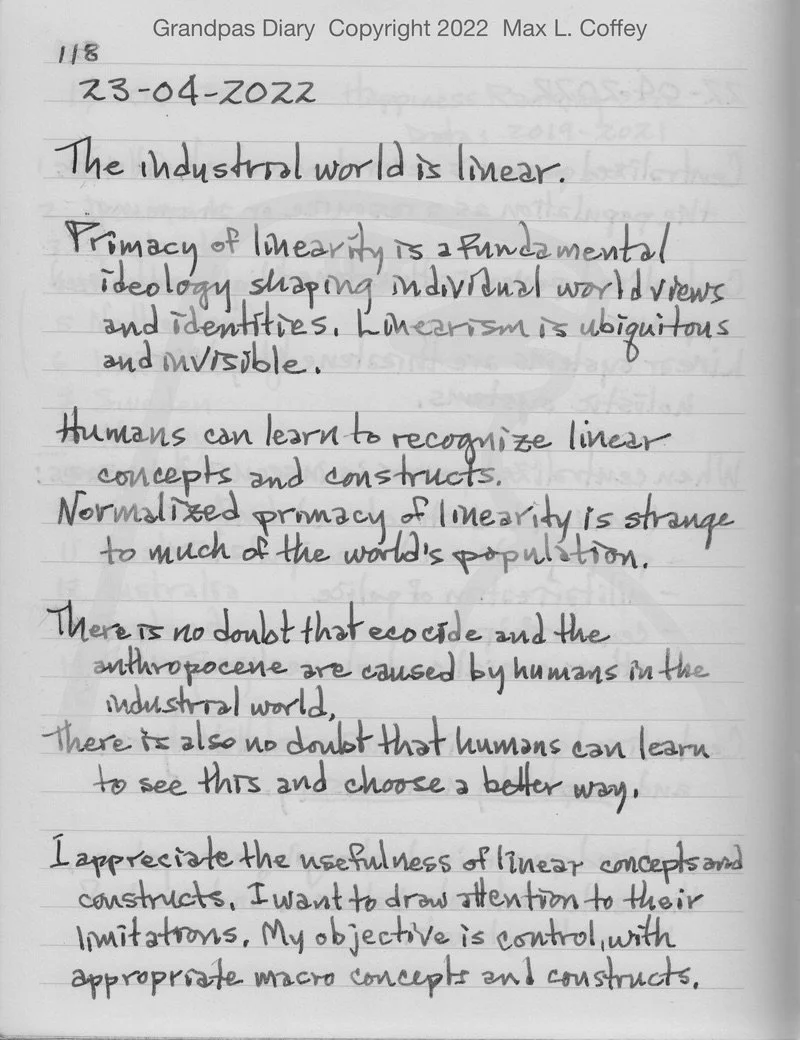 Grandpas Diary Copyright 2022 Max L. Coffey
118
23-04-2022
The industrial world is linear.
Primacy of linearity is a fundamental
ideology shaping individual world views
and identities. Linearism is ubiquitous
and invisible.
Humans can learn to recognize linear
concepts and constructs.
Normalized primacy of linearity is strange
to much of the world's population.
There is no doubt that ecocide and the
anthropocene are caused by humans in the
industrial world,
There is also no doubt that humans can learn
to see this and choose a better way.
I appreciate the usefulness of linear concepts and
constructs. I want to draw attention to their
limitations. My objective is control, with
appropriate macro concepts and constructs.